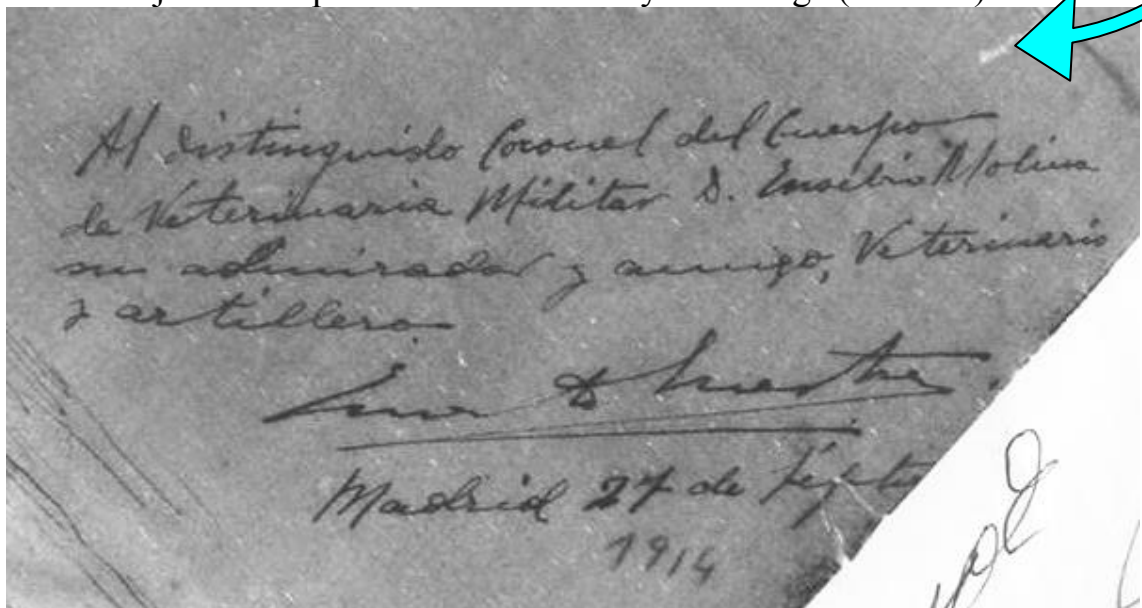 Al distinguido Coronel del Cuerpo
de Veterinaria Militar D. Eusebio Molina
su admirador y amigo, Veterinario
y artillero
Madrid 27 de Septe
1914